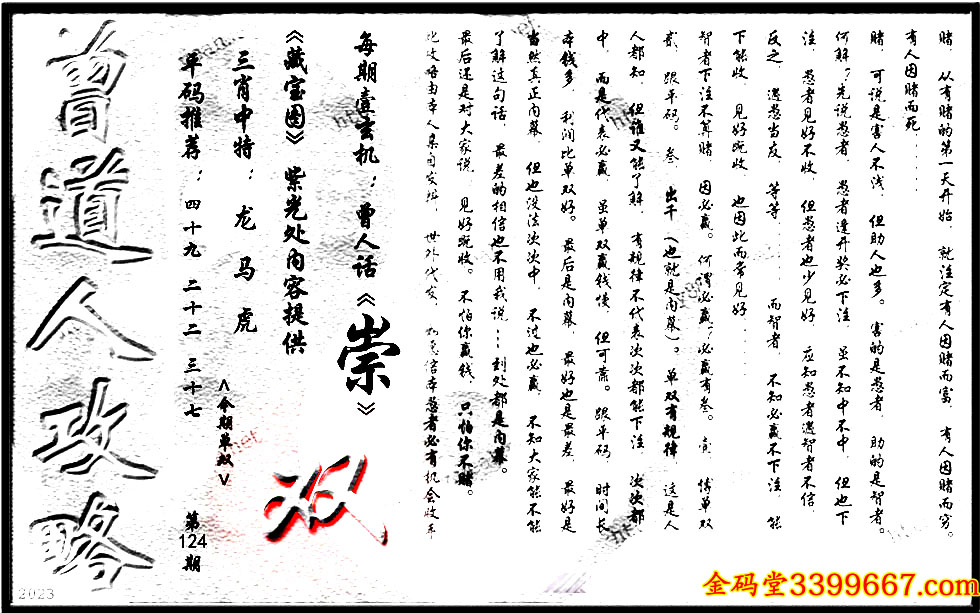 赌．从有赌的第一天开始．就注定有人因赌而富．有人因赌而穷。
有人因赌而死……
赌．可说是害人不浅．但助人也多。害的是愚者．助的是智者。
何解？先说愚者．愚者逢开奖必下注．虽不知中不中．但也下
注．愚者见好不收．但愚者也少见好．应知愚者遇智者不信．
反之．遇愚当度．等等……而智者．不知必赢不下注．能
下能收．见好既收．也因此而常见好……
智者下注不算赌．因必赢。何谓必赢？必赢有叁。壹．博单双
贰．跟平码。叁．出千（也就是内幕）。单双有规律．这是人
人都知．但谁又能了解．有规律不代表次次都能下注．次次都
中．而是代表必赢．虽单双赢钱慢．但可靠。跟平码．时间长
本钱多．利润比单双好。最后是内幕．最好也是最差．最好是
当然真正内幕．但也没法次次中．不过也必赢．不知大家能不
了解这句话．最差的相信也不用我说……到处都是内幕。
最后还是对大家说．见好既收。不怕你赢钱．只怕你不赌。
此攻略由本人集自发班．世外代友．愚者必有机会收年
每期壹玄机：曾人话《崇》
《藏宝图》紫光处内容提供
三肖中特：龙 马 虎
平码推荐：四十九 二十二 三十七
<今期单双>
双
第
124
期
曾道人攻略
2023
金码堂3399667.com